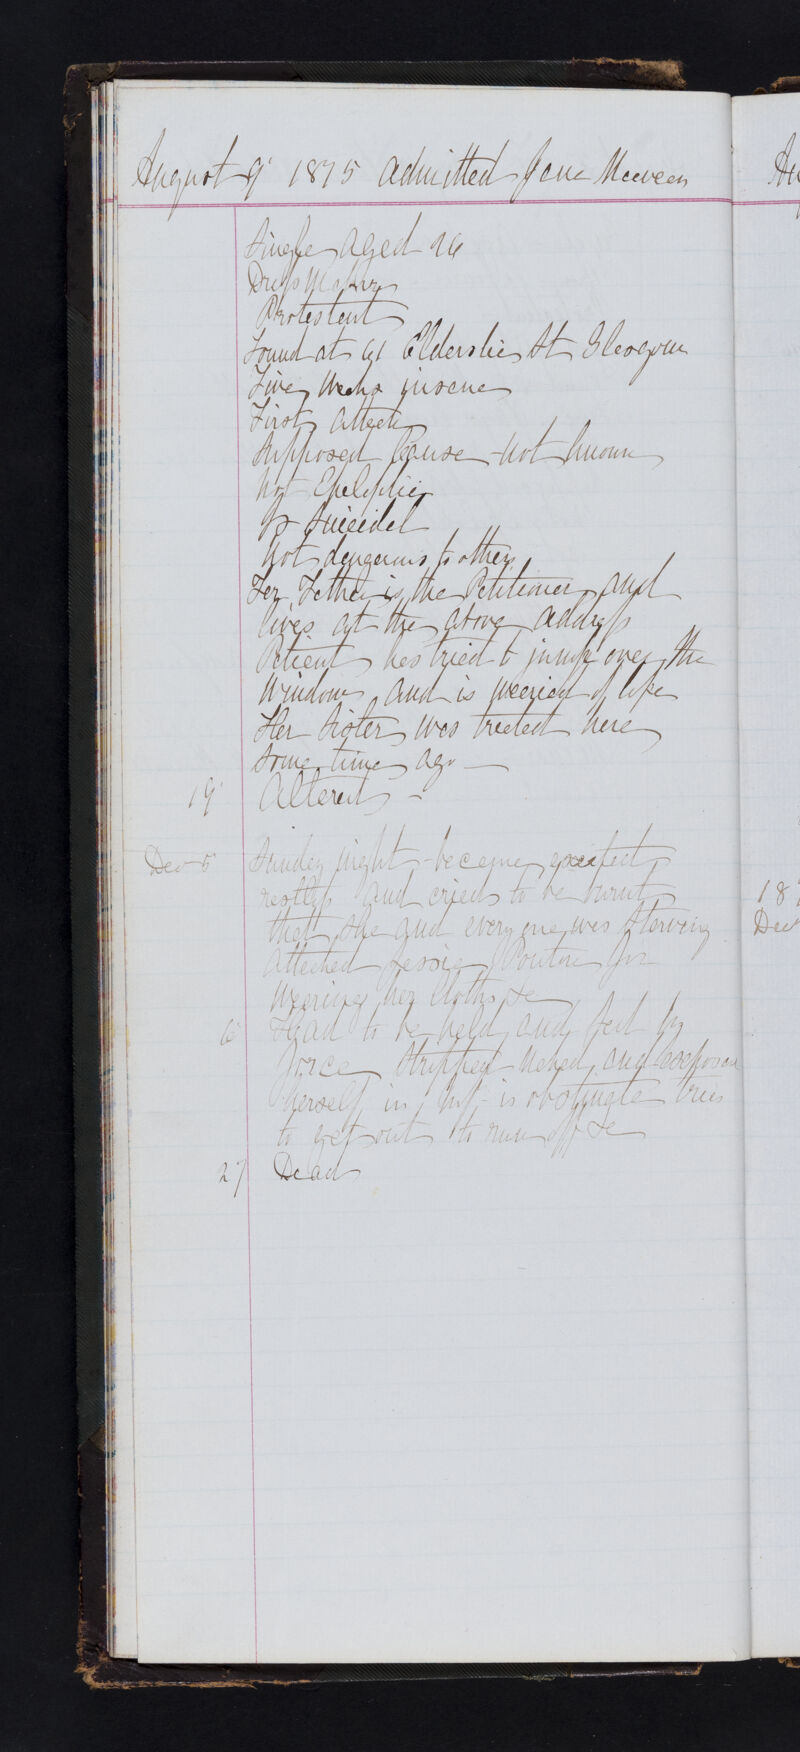 August 9 1875 admitted Jane
Single aged 26
Dressmaker
Protestant
Found at 61 Elderslie St Glasgow
Five weeks insane
First attack
Supposed cause - not known
Not Epileptic
Is Suicidal
Not dangerous to others
Her Father is the Petitioner and
lives at the above address
Patient has tried to jump over the
window and is wearied of life
Her Sister was treated here
some time ago —
19 Altered -
Dec 5 Sunday night - became excited
restless and cried to be burnt
that she and every one was starving
attacked Jessie for
wearing her cloths &c
6 Had to be held and fed by
force stripped naked and exposed
herself in is obstinate tries
to get out to run off &c
27 Dead
187
Dec